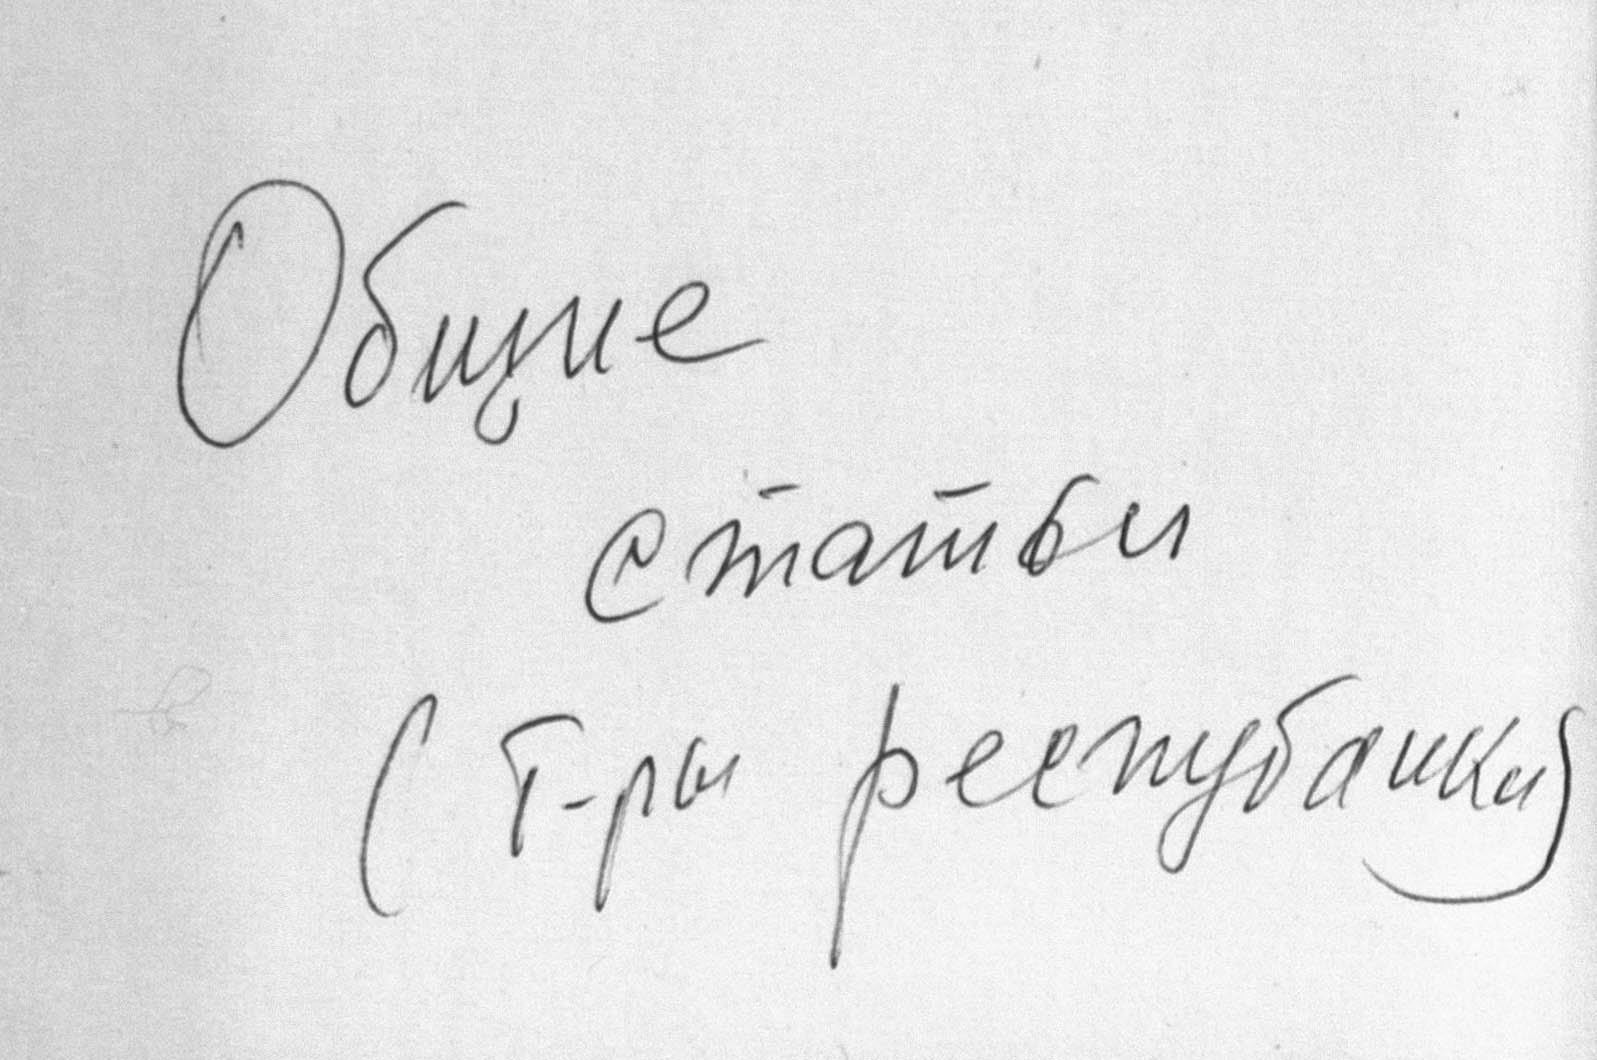 Общие
статьи
(Т-ры республики)